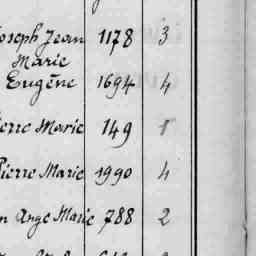 Joseph Jean 1178 3
Marie
Eugène 1694 4
Pierre Marie 149 1
Pierre Marie 1990 4
Ange Marie 788 2